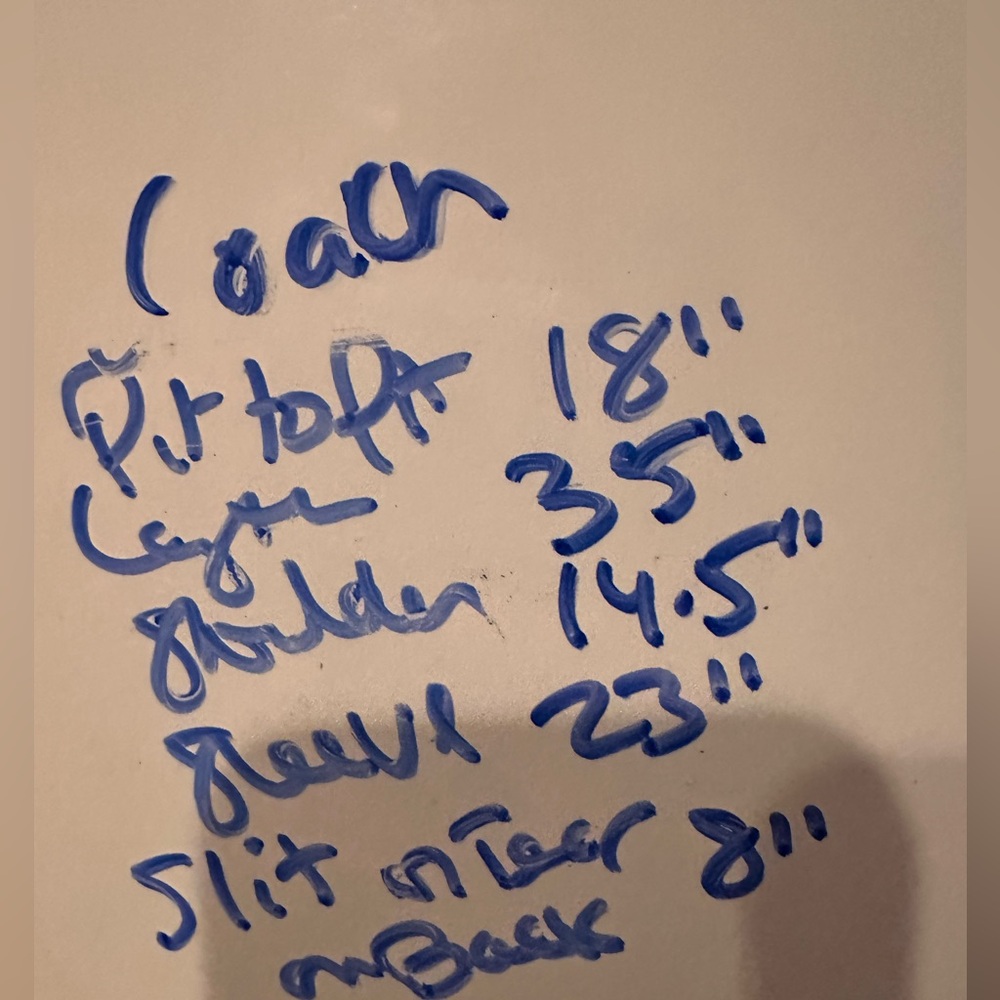 Coach
Pit to Pit 18"
Lengh 35"
Shoulder 14.5"
Sleeve 23"
Slit or Tear 8"
on Back